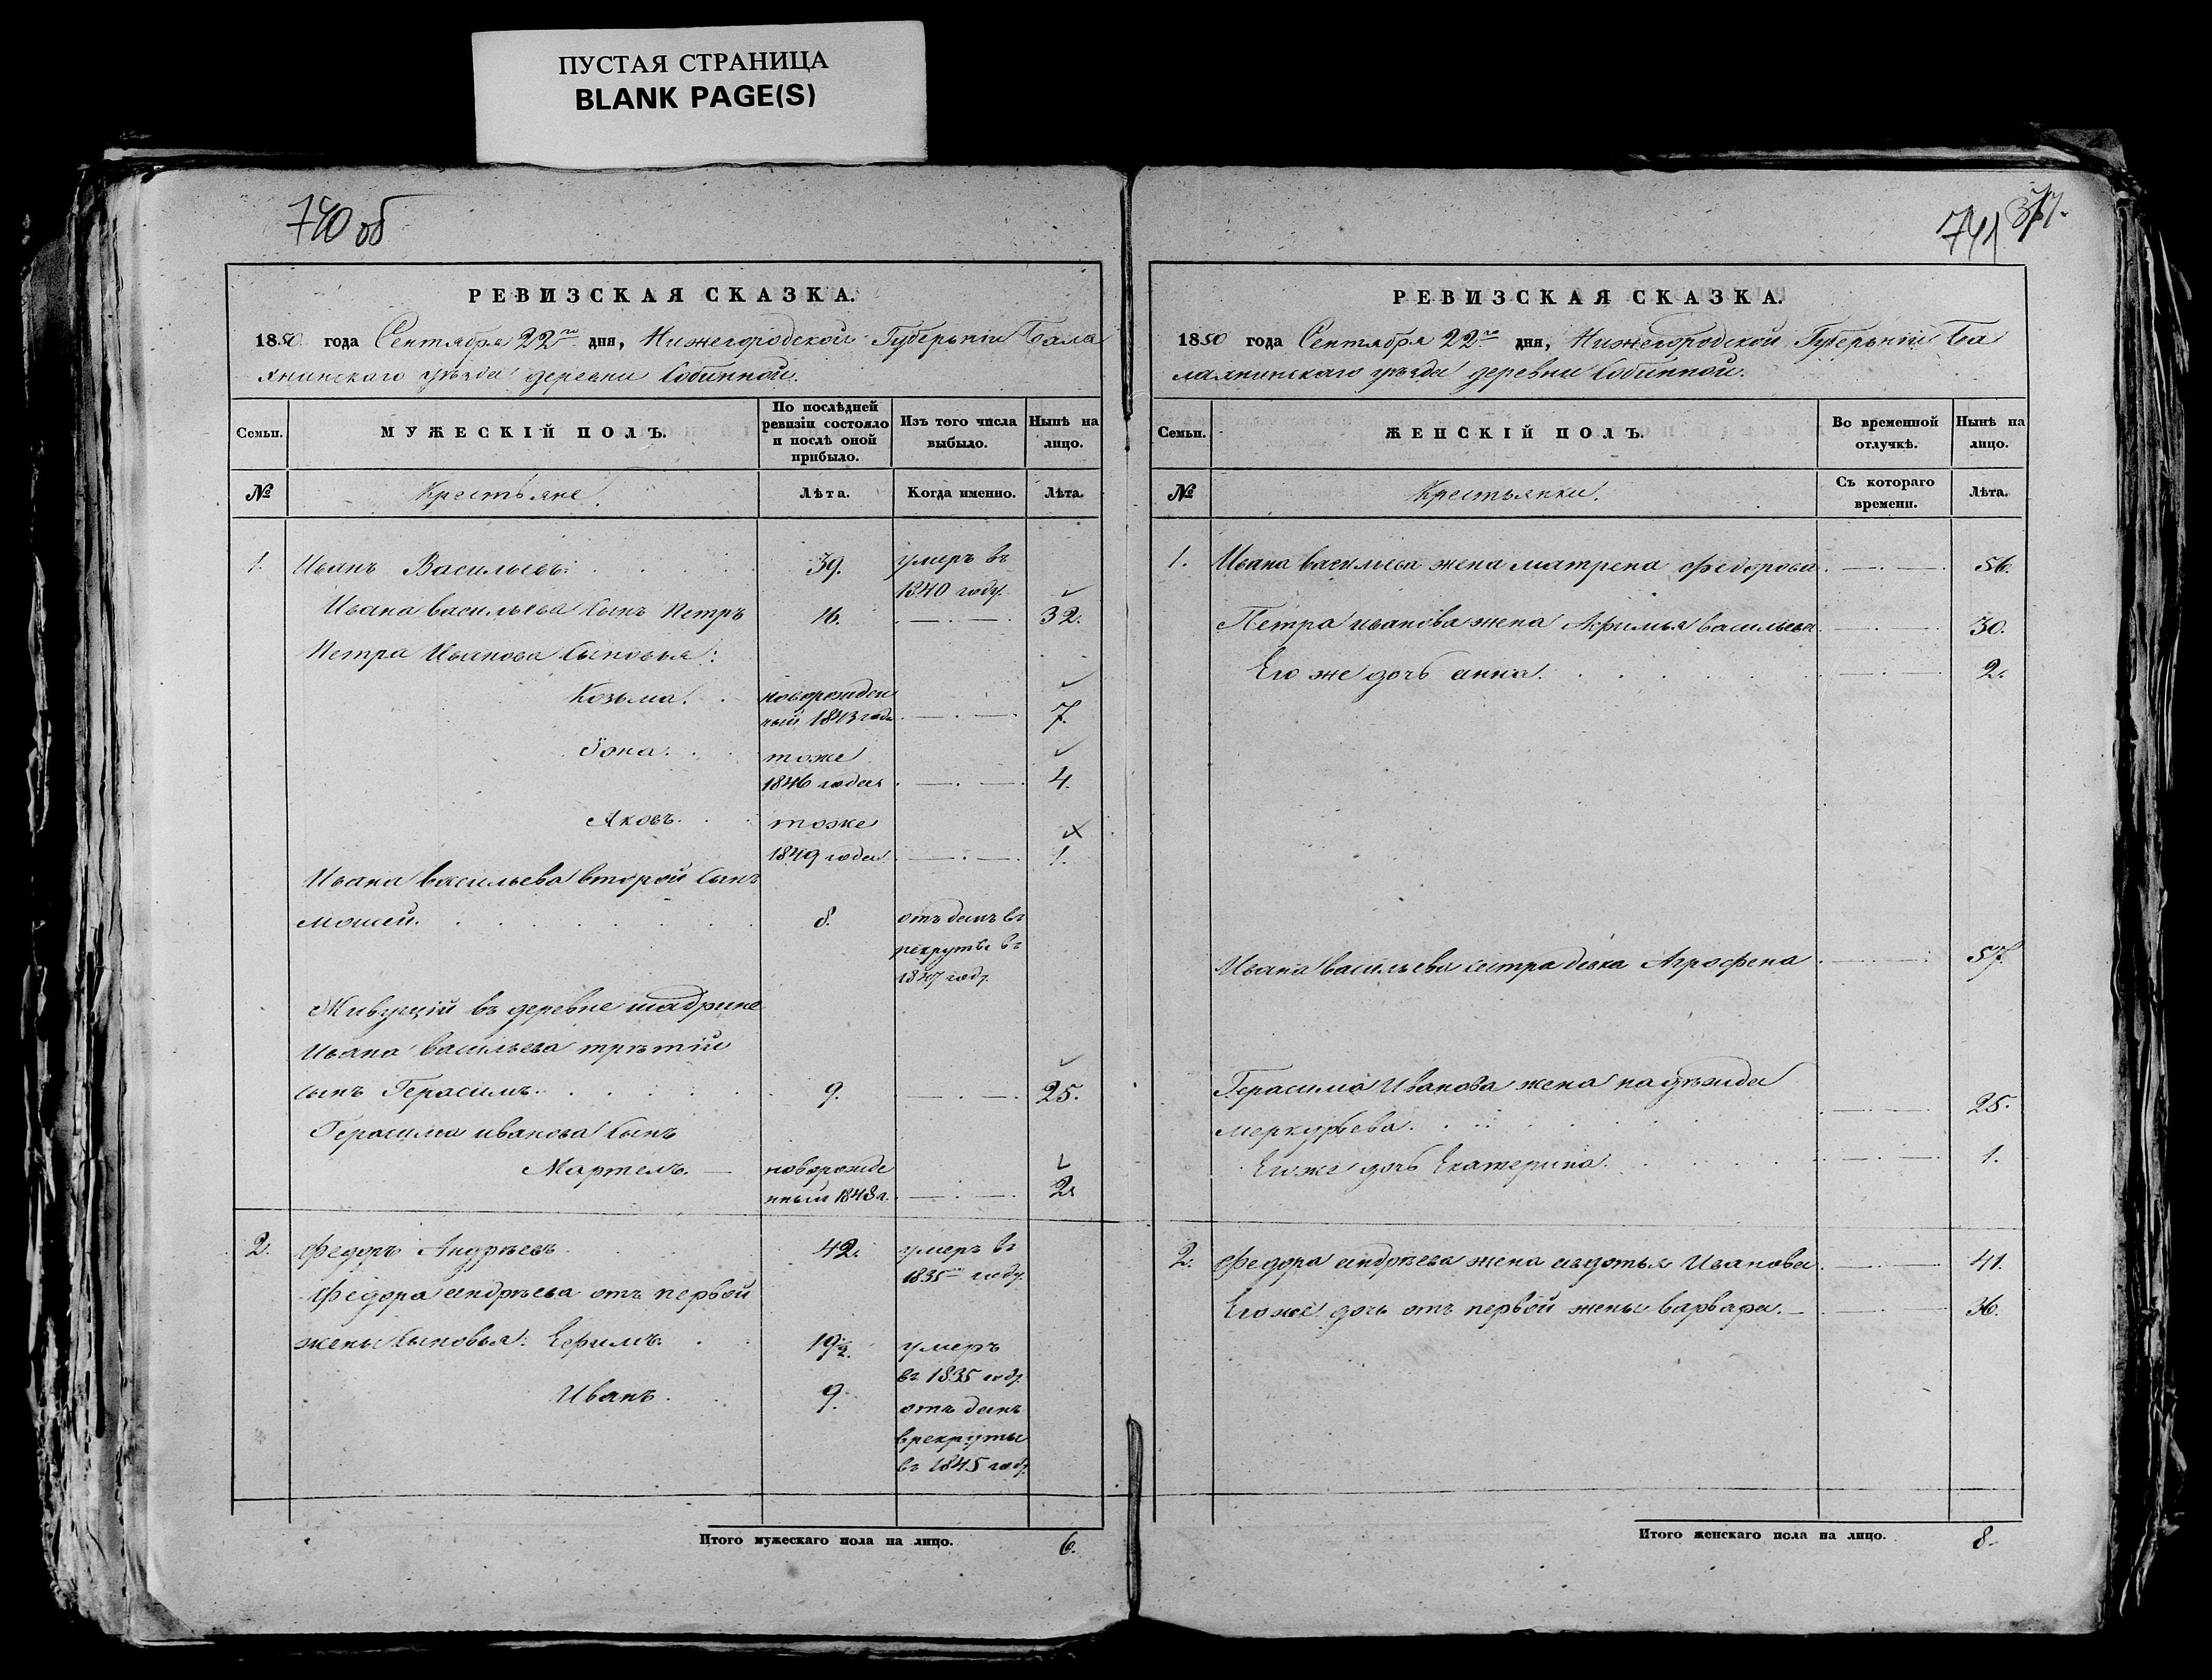 ПУСТАЯ СТРАНИЦА
BLANK PAGE(S)
740 об
РЕВИЗСКАЯ СКАЗКА.
1850 года Сентября 22го дня, Нижегородской Губерьніи Бала
хнинскаго уѣзда деревни Собинной.
Семьи.
МУЖЕСКІЙ ПОЛЪ.
По послѣдней
ревизіи состояло
и послѣ оной
прибыло.
Изъ того числа
выбыло.
Нынѣ на
лицо.
№
Крестьяне
Лѣта.
Когда именно.
Лѣта.
1. Иванъ Васильевъ. 39. умеръ въ
1840 году.
Ивана васильева сынъ Петръ 16. 32.
Петра Иванова сыновья:
Козьма. новорожден
ный 1843 года 7.
Iона. тоже
1846 года 4.
Яковъ. тоже
1849 года 1.
Ивана васильева второй сынъ
моисей. 8. отъ данъ въ
рекруты въ
1847 году.
Живущій въ деревне шадрине
Ивана васильева третий
сынъ Герасимъ. 9. 25.
Герасима иванова сынъ
Мартелъ. новорожде
нный 1848 г. 2
2. Федоръ Андреевъ 42. умеръ въ
1835 году.
Федора андреева отъ первой
жены сыновья: Ефимъ. 19½. умеръ
въ 1835 году.
Иванъ. 9. отъ данъ
врекруты
въ 1845 году.
Итого мужескаго пола на лицо. 6.
741
РЕВИЗСКАЯ СКАЗКА.
1850 года Сентября 22го дня, Нижегородской Губерьніи Ба
лахнинскаго уѣзда деревни Собинной.
Семьи.
ЖЕНСКІЙ ПОЛЪ.
Во временной
отлучкѣ.
Нынѣ на
лицо.
№
Крестьянки.
Съ котораго
времени.
Лѣта.
1. Ивана васильева жена матрена федорова 56.
Петра иванова жена Афимья васильева 30.
Его же дочь анна. 2.
Ивана васильева сестра девка Агрофена 57.
Герасима Иванова жена надежда
меркурьева. 25.
Егоже дочь Екатерина. 1.
2. Федора андреева жена авдотья Иванова 41.
Егоже дочь отъ первой жены варвара. 36.
Итого женскаго пола на лицо. 8.